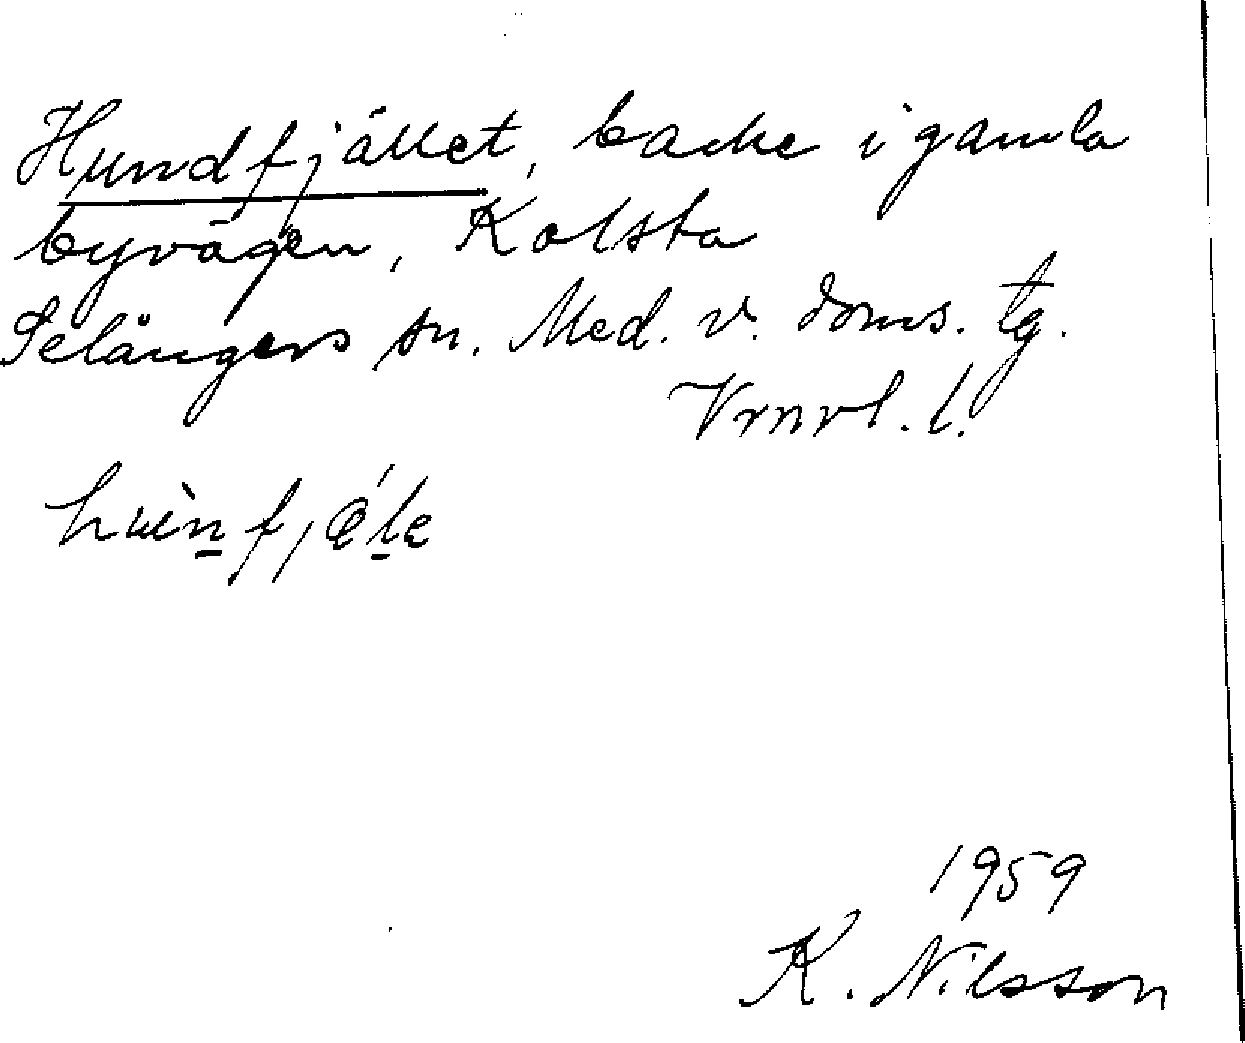 Hundfjället, backe i gamla
byvägen, Kolsta
Selångers sn. Med. v. doms. tg.
Vrnrl. l.
1959
K. Nilsson